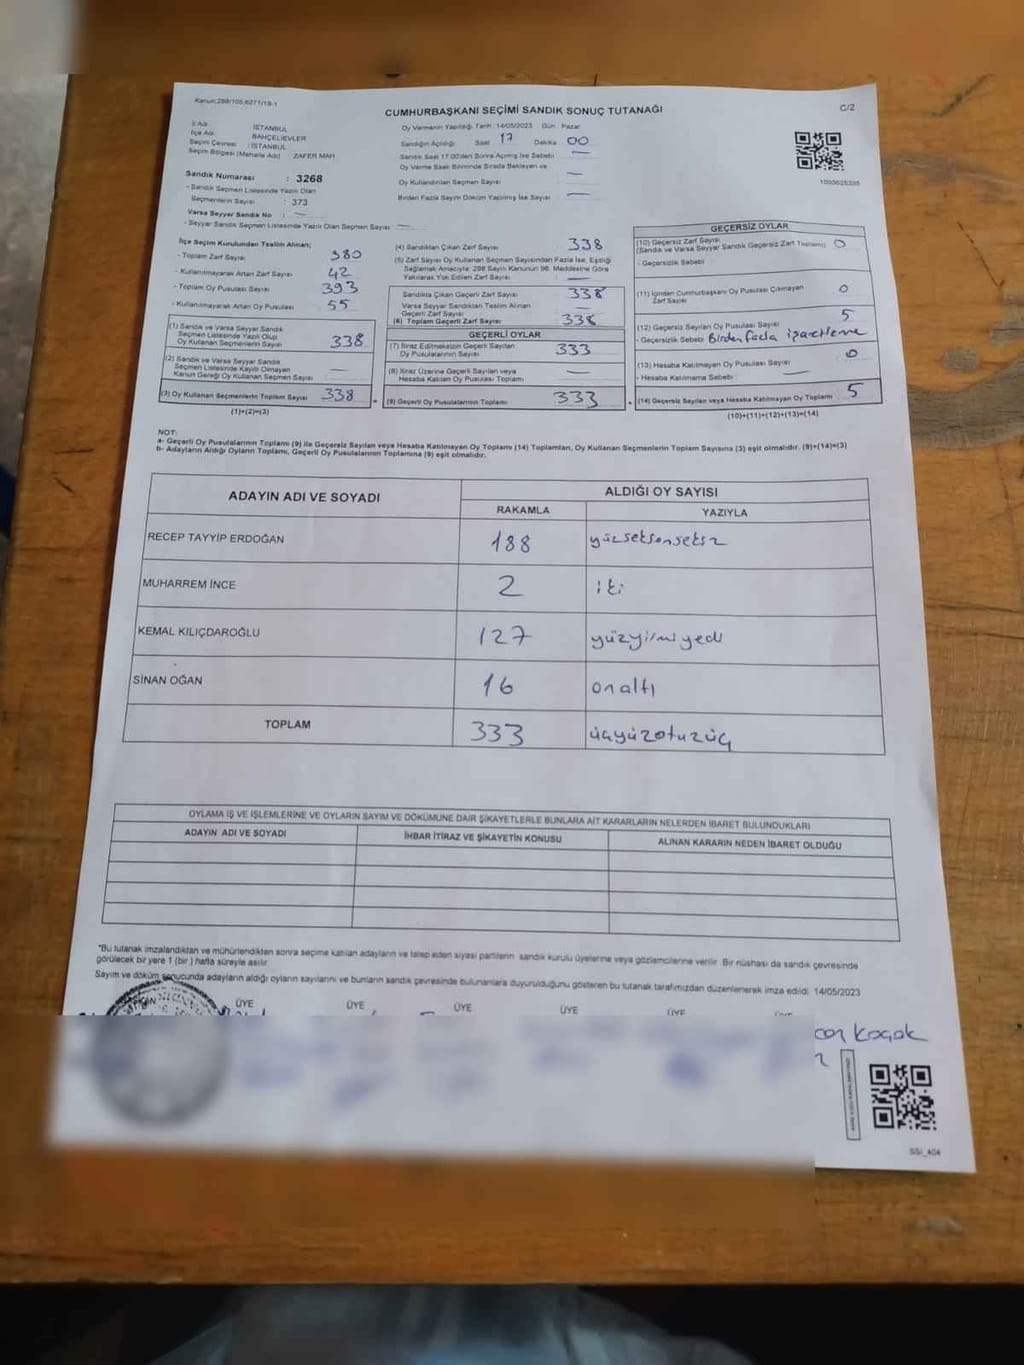 Kanun;298/105,6271/19-1
CUMHURBAŞKANI SEÇİMİ SANDIK SONUÇ TUTANAĞI
C/2
İl Adı : İSTANBUL
İlçe Adı : BAHÇELİEVLER
Seçim Çevresi : İSTANBUL
Seçim Bölgesi (Mahalle Adı) ZAFER MAH
Sandık Numarası : 3268
- Sandık Seçmen Listesinde Yazılı Olan
Seçmenlerin Sayısı : 373
Varsa Seyyar Sandık No : —
- Seyyar Sandık Seçmen Listesinde Yazılı Olan Seçmen Sayısı —
Oy Vermenin Yapıldığı Tarih : 14/05/2023 Gün : Pazar
Sandığın Açıldığı Saat 17 Dakika 00
Sandık Saat 17:00'den Sonra Açılmış İse Sebebi —
Oy Verme Saati Bitiminde Sırada Bekleyen ve
Oy Kullandırılan Seçmen Sayısı —
Birden Fazla Sayım Döküm Yapılmış İse Sayısı —
1003625335
İlçe Seçim Kurulundan Teslim Alınan;
- Toplam Zarf Sayısı 380
- Kullanılmayarak Artan Zarf Sayısı 42
- Toplam Oy Pusulası Sayısı 393
- Kullanılmayarak Artan Oy Pusulası 55
(1) Sandık ve Varsa Seyyar Sandık
Seçmen Listesinde Yazılı Olup
Oy Kullanan Seçmenlerin Sayısı 338
(2) Sandık ve Varsa Seyyar Sandık
Seçmen Listesinde Kayıtlı Olmayan
Kanun Gereği Oy Kullanan Seçmen Sayısı —
(3) Oy Kullanan Seçmenlerin Toplam Sayısı 338
(1)+(2)=(3)
(4) Sandıktan Çıkan Zarf Sayısı 338
(5) Zarf Sayısı Oy Kullanan Seçmen Sayısından Fazla İse, Eşitliği
Sağlamak Amacıyla; 298 Sayılı Kanunun 98. Maddesine Göre
Yakılarak Yok Edilen Zarf Sayısı : —
Sandıkta Çıkan Geçerli Zarf Sayısı 338
Varsa Seyyar Sandıktan Teslim Alınan
Geçerli Zarf Sayısı —
(6) Toplam Geçerli Zarf Sayısı 338
GEÇERLİ OYLAR
(7) İtiraz Edilmeksizin Geçerli Sayılan
Oy Pusulalarının Sayısı 333
(8) İtiraz Üzerine Geçerli Sayılan veya
Hesaba Katılan Oy Pusulası Toplamı —
= (9) Geçerli Oy Pusulalarının Toplamı 333
GEÇERSİZ OYLAR
(10) Geçersiz Zarf Sayısı
(Sandık ve Varsa Seyyar Sandık Geçersiz Zarf Toplamı) 0
- Geçersizlik Sebebi
(11) İçinden Cumhurbaşkanı Oy Pusulası Çıkmayan
Zarf Sayısı 0
(12) Geçersiz Sayılan Oy Pusulası Sayısı 5
- Geçersizlik Sebebi Birden fazla işaretleme
(13) Hesaba Katılmayan Oy Pusulası Sayısı 0
- Hesaba Katılmama Sebebi —
+ (14) Geçersiz Sayılan veya Hesaba Katılmayan Oy Toplamı 5
(10)+(11)+(12)+(13)=(14)
NOT:
a- Geçerli Oy Pusulalarının Toplamı (9) ile Geçersiz Sayılan veya Hesaba Katılmayan Oy Toplamı (14) Toplamları, Oy Kullanan Seçmenlerin Toplam Sayısına (3) eşit olmalıdır. (9)+(14)=(3)
b- Adayların Aldığı Oyların Toplamı, Geçerli Oy Pusulalarının Toplamına (9) eşit olmalıdır.
ADAYIN ADI VE SOYADI ALDIĞI OY SAYISI
RAKAMLA YAZIYLA
RECEP TAYYİP ERDOĞAN 188 yüzseksensekiz
MUHARREM İNCE 2 iki
KEMAL KILIÇDAROĞLU 127 yüzyirmiyedi
SİNAN OĞAN 16 onaltı
TOPLAM 333 üçyüzotuzüç
OYLAMA İŞ VE İŞLEMLERİNE VE OYLARIN SAYIM VE DÖKÜMÜNE DAİR ŞİKAYETLERLE BUNLARA AİT KARARLARIN NELERDEN İBARET BULUNDUKLARI
ADAYIN ADI VE SOYADI İHBAR İTİRAZ VE ŞİKAYETİN KONUSU ALINAN KARARIN NEDEN İBARET OLDUĞU
*Bu tutanak imzalandıktan ve mühürlendikten sonra seçime katılan adayların ve talep eden siyasi partilerin sandık kurulu üyelerine veya gözlemcilerine verilir. Bir nüshası da sandık çevresinde
görülecek bir yere 1 (bir) hafta süreyle asılır.
Sayım ve döküm sonucunda adayların aldığı oyların sayılarını ve bunların sandık çevresinde bulunanlara duyurulduğunu gösteren bu tutanak tarafımızdan düzenlenerek imza edildi. 14/05/2023
ÜYE ÜYE ÜYE ÜYE ÜYE
SSI_404